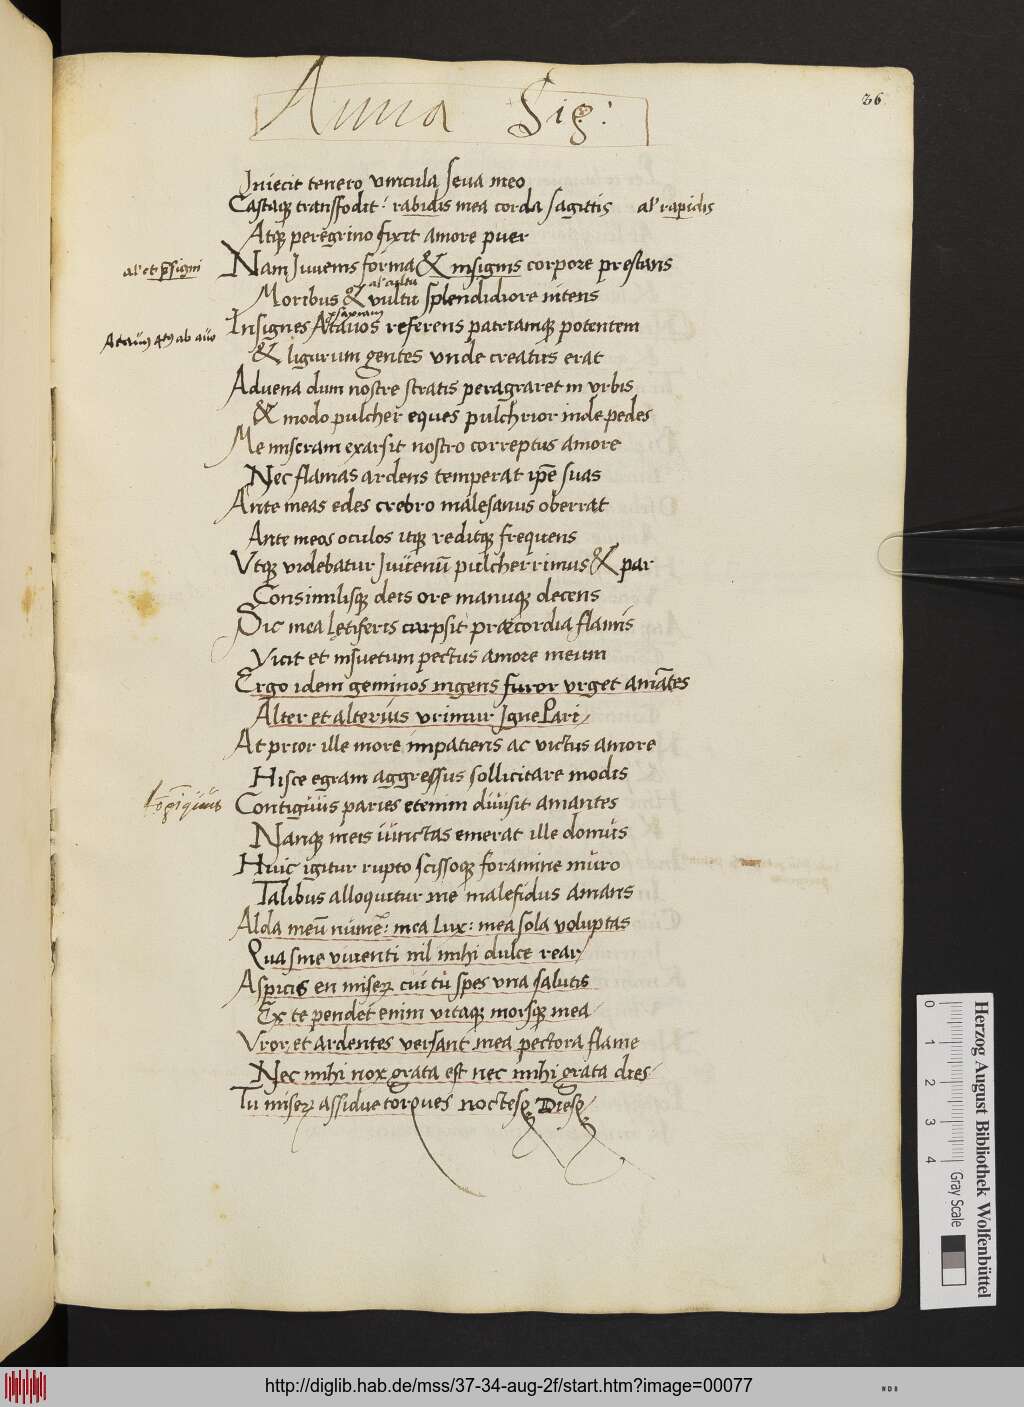 36
Anna Sig:
Iniecit tenero vincula seua meo
Castaq; transfodit: rabidis mea corda sagittis al' rapidis
Atq; peregrino fixit amore puer
al' et p̄signi
Nam Juuenis forma & insignis corpore prestans
al' cultu
Moribus & vultu splendidiore nitens
Ataūm qm̄ ab auo
Insignes Atauos referens patriamq; potentem
& ligurum gentes vnde creatus erat
Aduena dum nostre stratis peragraret in vrbis
& modo pulcher eques pulchrior inde pedes
Me miseram exarsit nostro correptus amore
Nec flamas ardens temperat ip̄e suas
Ante meas edes crebro malesanus oberrat
Ante meos oculos itq; reditq; frequens
Vtq; videbatur Juuenū pulcherrimus & par
Consimilisq; deis ore manuq; decens
Sic mea lętiferis carpsit præcordia flamis
Vicit et insuetum pectus amore meum
Ergo idem geminos ingens furor vrget amātes
Alter et alterius vrimur Igne Pari
At prior ille more impatiens ac victus amore
Hisce egram aggressus sollicitare modis
Contiguus paries etenim diuisit amantes
Nanq; meis iunctas emerat ille domus
Huic igitur rupto scissoq; foramine muro
Talibus alloquitur me malefidus amans
Alda meū numē: mea Lux: mea sola voluptas
Qua sine viuenti nil mihi dulce rear
Aspicis en miserꝝ cui tu spes vna salutis
Ex te pendet enim vitaq; morsq; mea
Vror et ardentes versant mea pectora flame
Nec mihi nox grata est nec mihi grata dies
Tu miserꝝ assidue torques noctesq; Diesq;
Herzog August Bibliothek Wolfenbüttel
0 1 2 3 4 Gray Scale
http://diglib.hab.de/mss/37-34-aug-2f/start.htm?image=00077